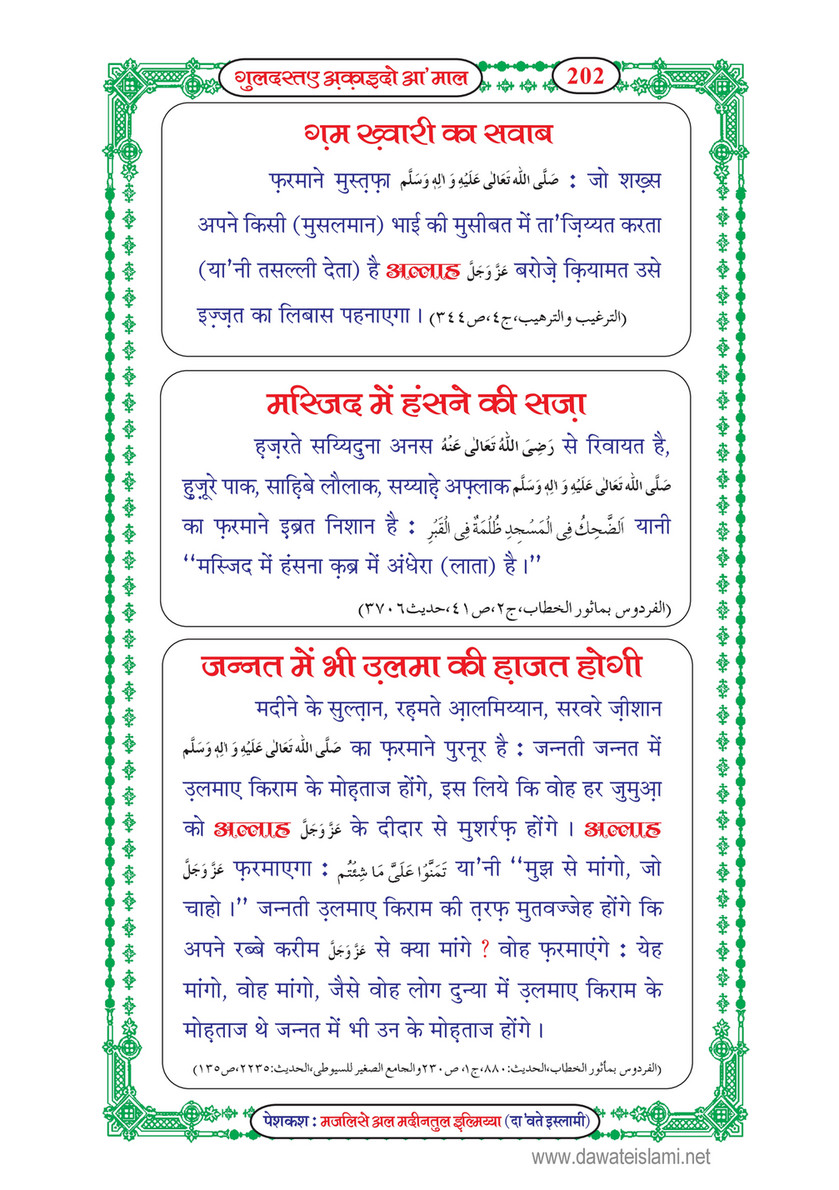 गुलदस्तए अ़क़ाइदो आ'माल
202
ग़म ख़्वारी का सवाब
फ़रमाने मुस्त़फ़ा صَلَّى اللّٰه تَعَالٰى عَلَيْهِ وَ اٰلِهٖ وَسَلَّم : जो शख़्स
अपने किसी (मुसलमान) भाई की मुसीबत में ता'ज़िय्यत करता
(या'नी तसल्ली देता) है अल्लाह عَزَّ وَجَلَّ बरोज़े क़ियामत उसे
इज़्ज़त का लिबास पहनाएगा । (الترغيب والترهيب،ج٤،ص٣٤٤)
मस्जिद में हंसने की सज़ा
ह़ज़रते सय्यिदुना अनस رَضِىَ اللّٰهُ تَعَالٰى عَنْهُ से रिवायत है,
हुज़ूरे पाक, साहिबे लौलाक, सय्याहे अफ़्लाक صَلَّى اللّٰه تَعَالٰى عَلَيْهِ وَ اٰلِهٖ وَسَلَّم
का फ़रमाने इब्रत निशान है : اَلضَّحِكُ فِى الْمَسْجِدِ ظُلْمَةٌ فِى الْقَبْرِ यानी
“मस्जिद में हंसना क़ब्र में अंधेरा (लाता) है ।”
(الفردوس بماثور الخطاب،ج٢،ص٤١،حديث٣٧٠٦)
जन्नत में भी उ़लमा की ह़ाजत होगी
मदीने के सुल्त़ान, रह़मते आ़लमिय्यान, सरवरे ज़ीशान
صَلَّى اللّٰه تَعَالٰى عَلَيْهِ وَ اٰلِهٖ وَسَلَّم का फ़रमाने पुरनूर है : जन्नती जन्नत में
उ़लमाए किराम के मोह़ताज होंगे, इस लिये कि वोह हर जुमुआ़
को अल्लाह عَزَّ وَجَلَّ के दीदार से मुशर्रफ़ होंगे । अल्लाह
عَزَّ وَجَلَّ फ़रमाएगा : تَمَنَّوْا عَلَىَّ مَا شِئْتُم या'नी “मुझ से मांगो, जो
चाहो ।” जन्नती उ़लमाए किराम की त़रफ़ मुतवज्जेह होंगे कि
अपने रब्बे करीम عَزَّ وَجَلَّ से क्या मांगे ? वोह फ़रमाएंगे : येह
मांगो, वोह मांगो, जैसे वोह लोग दुन्या में उ़लमाए किराम के
मोह़ताज थे जन्नत में भी उन के मोह़ताज होंगे ।
(الفردوس بمأثور الخطاب،الحديث:٨٨٠،ج١،ص٢٣٠والجامع الصغير للسيوطى،الحديث:٢٢٣٥،ص١٣٥)
पेशकश : मजलिसे अल मदीनतुल इ़ल्मिय्या (दा'वते इस्लामी)
www.dawateislami.net